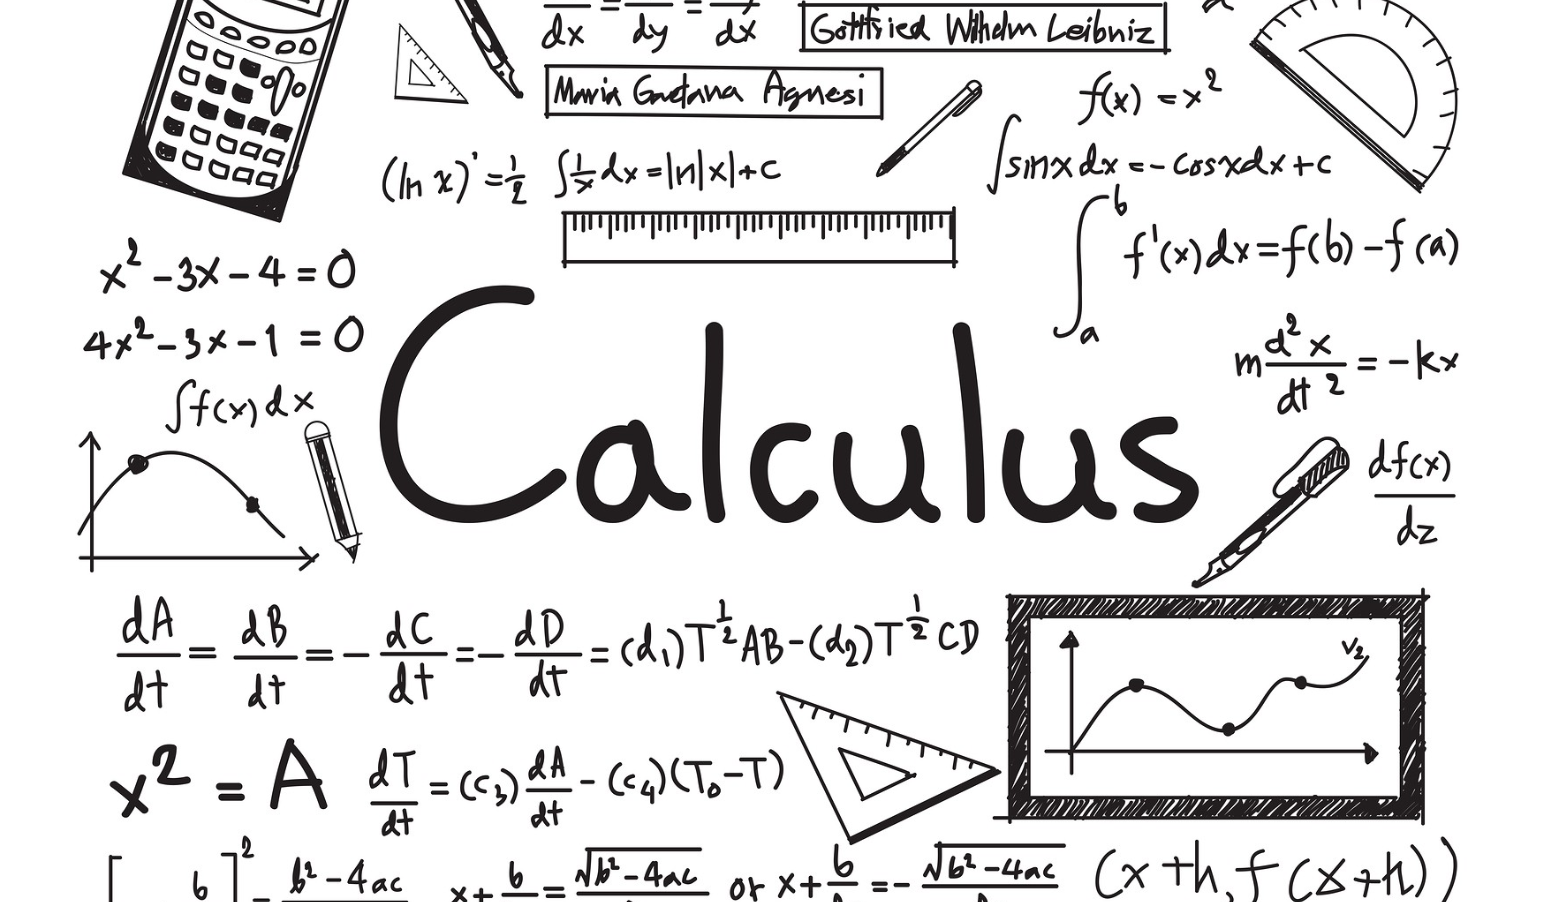 dx = dy = dx
Gottfried Wilhelm Leibniz
Maria Gaetana Agnesi
f(x) = x²
(ln x)' = 1/2
∫ 1/x dx = ln|x| + c
∫ sinx dx = - cosxdx + c
∫ₐᵇ f'(x) dx = f(b) - f(a)
x² - 3x - 4 = 0
4x² - 3x - 1 = 0
Calculus
m d²x/dt² = -kx
∫f(x) dx
df(x)/dz
dA/dt = dB/dt = - dC/dt = - dD/dt = (d₁)T^½ AB - (d₂)T^½ CD
V₂
x² = A
dT/dt = (c₃) dA/dt - (c₄)(T₀ - T)
[ b ]² = b² - 4ac
x + b = √b² - 4ac or x + b = - √b² - 4ac
(x + h, f(x + h))